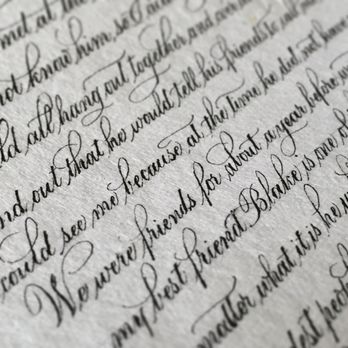 met at the
not know him, so I
ld all hang out together, and over
nd out that he would tell his friends to call
could see me because at the time he did not have
We were friends for about a year before
my best friend. Blake is one of
matter what it is, he
dest people